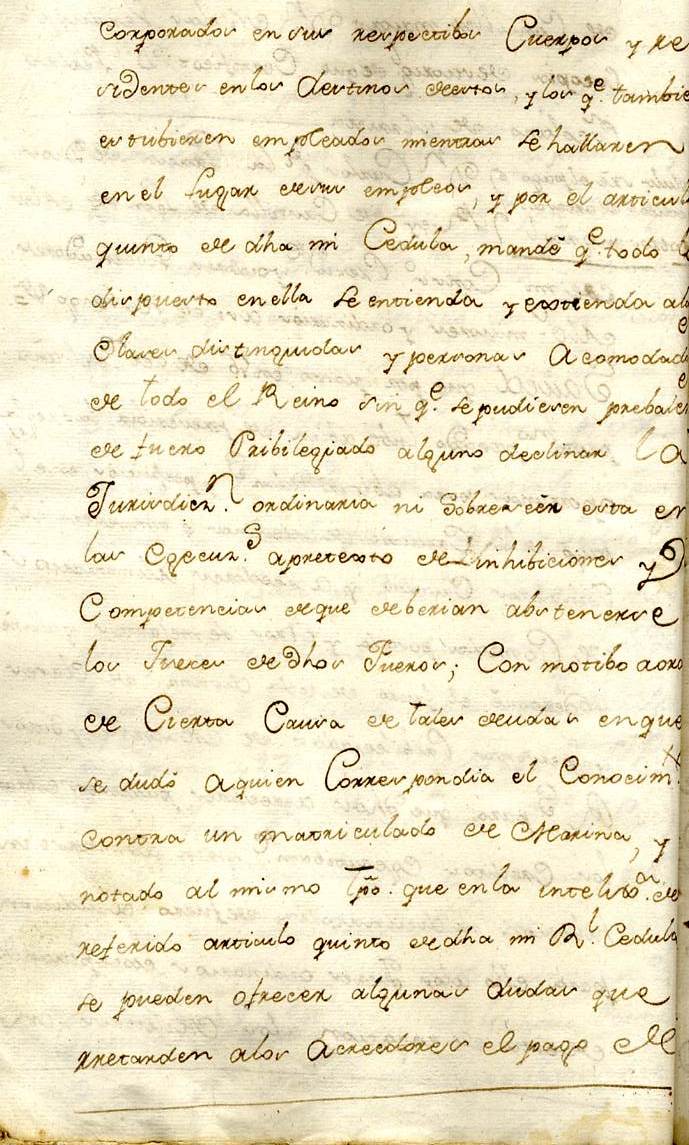 corporados en sus respectibos Cuerpos y re
sidentes en los destinos de estos, y los q.e tambie
estubieren empleados mientras se hallaren
en el Lugar de sus empleos, y por el articul
quinto de dha mi Cedula, mandé q.e todo l
dispuesto en ella se entienda y extienda alo
Clases distinguidas y personas Acomodad
de todo el Reino sin q.e se pudiesen prebaler
de fuero Pribilegiado alguno declinar la
Jurisdicz.n ordinaria ni Sobreseér esta en
las Egecuz.s a pretexto de Inhibiciones y
Competencias de que deberian abstenerse
los Jueces de dhos Fueros; Con motibo aora
de Cierta Causa de tales deudas en que
se dudó a quien Correspondia el Conocim.to
contra un matriculado de Marina, y
notado al mismo Tpo. que en la intelix.a de
referido articulo quinto de dha mi R.l Cedula
se pueden ofrecer algunas dudas que
rretarden alos Acreedores el pago de